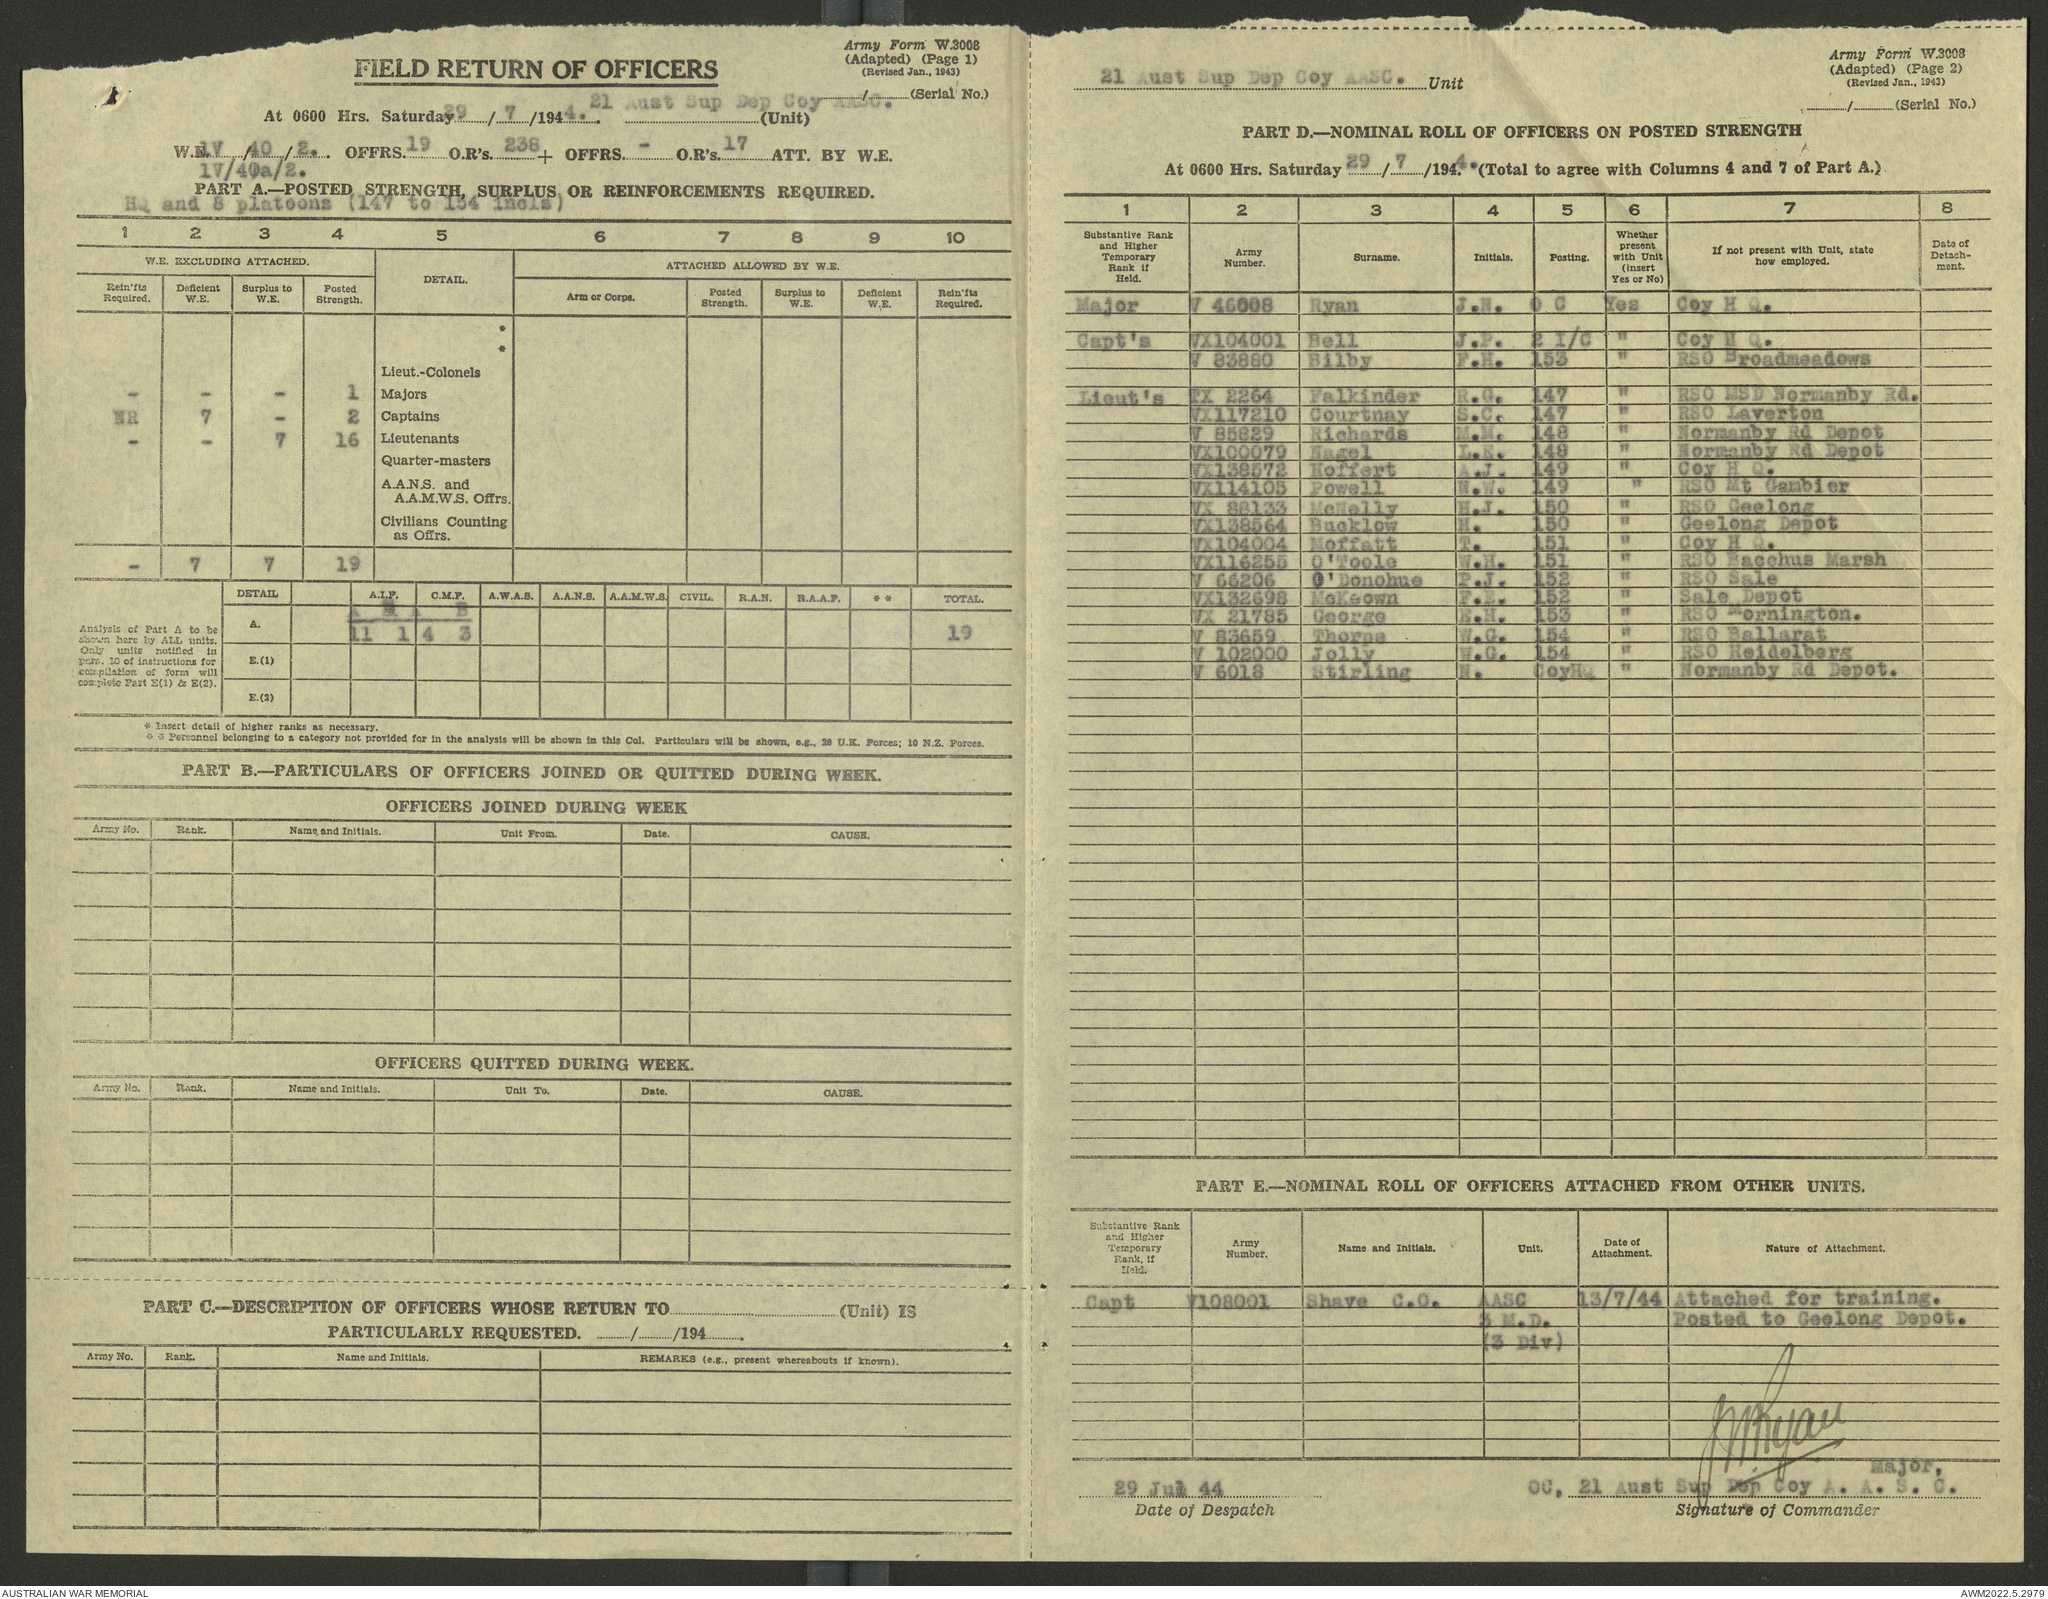 Army Form W.3008
(Adapted) (Page 1)
(Revised Jan., 1943)
FIELD RETURN OF OFFICERS
/ (Serial No.)
At 0600 Hrs. Saturday 29 / 7 /1944. 21 Aust Sup Dep Coy AASC. (Unit)
W.E. 1V / 40 / 2. OFFRS. 19 O.R's. 238 + OFFRS. - O.R's. 17 ATT. BY W.E.
1V/40a/2.
PART A.—POSTED STRENGTH, SURPLUS OR REINFORCEMENTS REQUIRED.
HQ and 8 platoons (147 to 154 incls)
1 2 3 4 5 6 7 8 9 10
W.E. EXCLUDING ATTACHED. DETAIL. ATTACHED ALLOWED BY W.E.
Rein'fts Required. Deficient W.E. Surplus to W.E. Posted Strength. Arm or Corps. Posted Strength. Surplus to W.E. Deficient W.E. Rein'fts Required.
*
*
Lieut.-Colonels
- - - 1 Majors
NR 7 - 2 Captains
- - 7 16 Lieutenants
Quarter-masters
A.A.N.S. and
A.A.M.W.S. Offrs.
Civilians Counting
as Offrs.
- 7 7 19
DETAIL A.I.F. C.M.F. A.W.A.S. A.A.N.S. A.A.M.W.S. CIVIL. R.A.N. R.A.A.F. * * TOTAL.
A B A B
A. 11 1 4 3 19
E.(1)
E.(2)
Analysis of Part A to be
shown here by ALL units.
Only units notified in
para. 10 of instructions for
compilation of form will
complete Part E(1) & E(2).
* Insert detail of higher ranks as necessary.
* * Personnel belonging to a category not provided for in the analysis will be shown in this Col. Particulars will be shown, e.g., 28 U.K. Forces; 10 N.Z. Forces.
PART B.—PARTICULARS OF OFFICERS JOINED OR QUITTED DURING WEEK.
OFFICERS JOINED DURING WEEK
Army No. Rank. Name and Initials. Unit From. Date. CAUSE.
OFFICERS QUITTED DURING WEEK.
Army No. Rank. Name and Initials. Unit To. Date. CAUSE.
PART C.—DESCRIPTION OF OFFICERS WHOSE RETURN TO (Unit) IS
PARTICULARLY REQUESTED. / /194 .
Army No. Rank. Name and Initials. REMARKS (e.g., present whereabouts if known).
Army Form W.3008
(Adapted) (Page 2)
(Revised Jan., 1943)
21 Aust Sup Dep Coy AASC. Unit
/ (Serial No.)
PART D.—NOMINAL ROLL OF OFFICERS ON POSTED STRENGTH
At 0600 Hrs. Saturday 29 / 7 /1944. (Total to agree with Columns 4 and 7 of Part A.)
1 2 3 4 5 6 7 8
Substantive Rank and Higher Temporary Rank if Held. Army Number. Surname. Initials. Posting. Whether present with Unit (insert Yes or No) If not present with Unit, state how employed. Date of Detach-ment.
Major V 46008 Ryan J.N. O C Yes Coy H Q.
Capt's VX104001 Bell J.P. 2 I/C " Coy H Q.
V 83880 Bilby F.H. 153 " RSO Broadmeadows
Lieut's TX 2264 Falkinder R.G. 147 " RSO MSD Normanby Rd.
VX117210 Courtnay S.C. 147 " RSO Laverton
V 85829 Richards M.M. 148 " Normanby Rd Depot
VX100079 Nagel L.E. 148 " Normanby Rd Depot
VX138572 Hoffert A.J. 149 " Coy H Q.
VX114105 Powell N.W. 149 " RSO Mt Gambier
VX 88133 McNelly H.J. 150 " RSO Geelong
VX138564 Bucklow H. 150 " Geelong Depot
VX104004 Moffatt T. 151 " Coy H Q.
VX116255 O'Toole W.H. 151 " RSO Bacchus Marsh
V 66206 O'Donohue P.J. 152 " RSO Sale
VX132698 McKeown F.E. 152 " Sale Depot
VX 21785 George E.H. 153 " RSO Mornington.
V 83659 Thorpe W.G. 154 " RSO Ballarat
V 102000 Jolly W.G. 154 " RSO Heidelberg
V 6018 Stirling N. CoyHQ " Normanby Rd Depot.
PART E.—NOMINAL ROLL OF OFFICERS ATTACHED FROM OTHER UNITS.
Substantive Rank and Higher Temporary Rank, if Held. Army Number. Name and Initials. Unit. Date of Attachment. Nature of Attachment.
Capt V108001 Shave C.O. AASC 13/7/44 Attached for training.
3 M.D. Posted to Geelong Depot.
(3 Div)
JNRyan
Major,
29 Jul 44 OC, 21 Aust Sup Dep Coy A. A. S. C.
Date of Despatch Signature of Commander
AUSTRALIAN WAR MEMORIAL AWM2022.5.2979